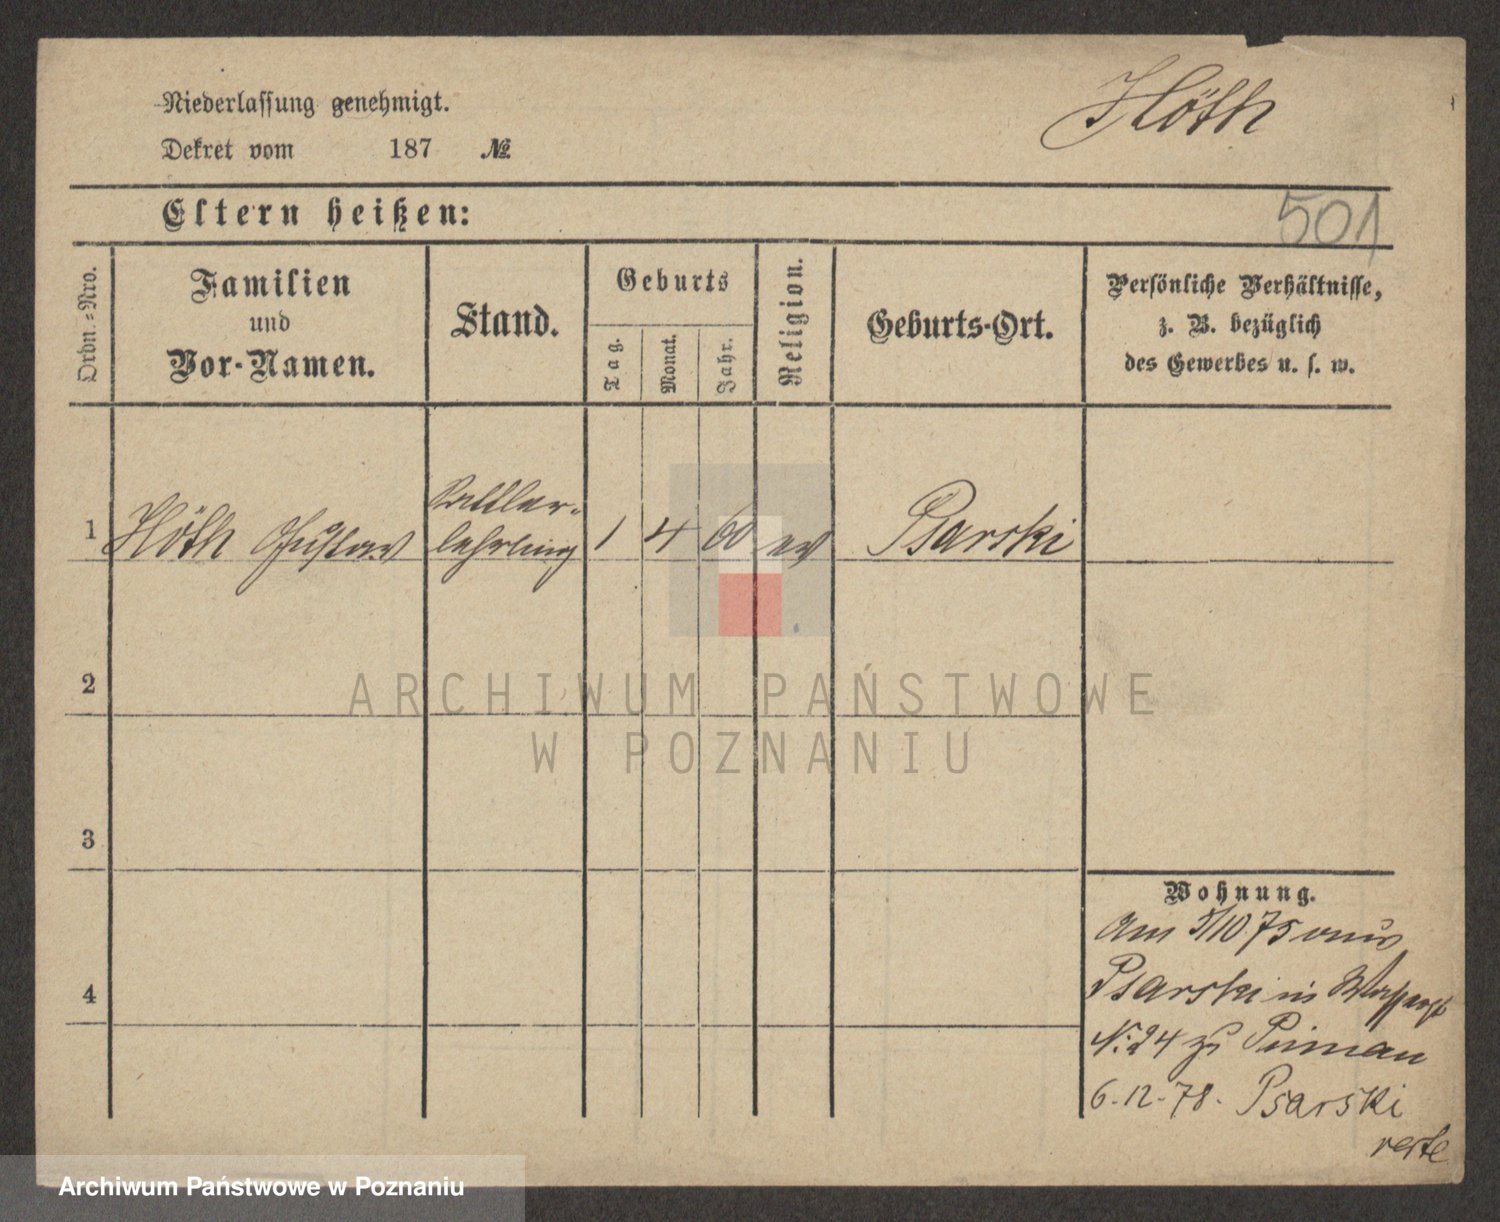 Niederlassung genehmigt.
Dekret vom 187 №
Höth
Eltern heißen:
501
Ordn.-Nro.
Familien
und
Vor-Namen.
Stand.
Geburts
Tag.
Monat.
Jahr.
Religion.
Geburts-Ort.
Persönliche Verhältnisse,
z. B. bezüglich
des Gewerbes u. s. w.
1 Höth Gustav Sattler-
lehrling 1 4 60 ev Psarski
2
3
4
ARCHIWUM PAŃSTWOWE
W POZNANIU
Wohnung.
Am 5/10 75 aus
Psarski in
N: 24 zu
6.12.78. Psarski
verte
Archiwum Państwowe w Poznaniu